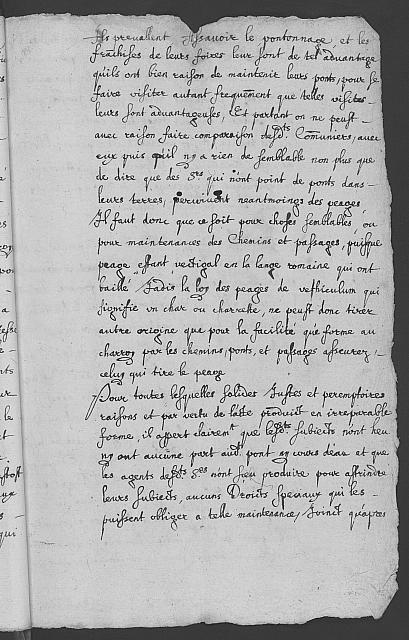 Ils prevallent Assavoir le pontonnage et les
frachises de leurs foires leur sont de tel advantage
quils ont bien raison de maintenir leurs ponts, pour se
faire visiter autant frequement que telles visites
leurs sont advantageuses, Et partant on ne peust
avec raison faire comparaison desdts Comuniers, avec
eux puis quil ny a rien de semblable non plus que
de dire que des Srs qui nont point de ponts dans
leurs terres, percoivent neantmoings des peages
Il faut donc que ce soit pour choses semblables, ou
pour maintenances des Chemins et passages, puisque
peage estant vectigal en la lange romaine qui ont
baillé Jadis la loy des peages de vehiculum qui
signifie un char ou charrette, ne peust donc tirer
autre origine que pour la facilité que forme au
charroy par les chemins, ponts, et passages asseurez,
celuy qui tire le peage
Pour toutes lesquelles solides Justes et peremptoires
raisons et par vertu de produict en irreparable
forme, il appert clairemt que lesdts subiects nont heu
ny ont aucune part audt pont ny cours deau et que
les agents desdts Srs nont sceu produire pour astraindre
leurs subiects, aucuns Droicts speciaux qui les
puissent obliger a telle maintenance, Joinct quapres